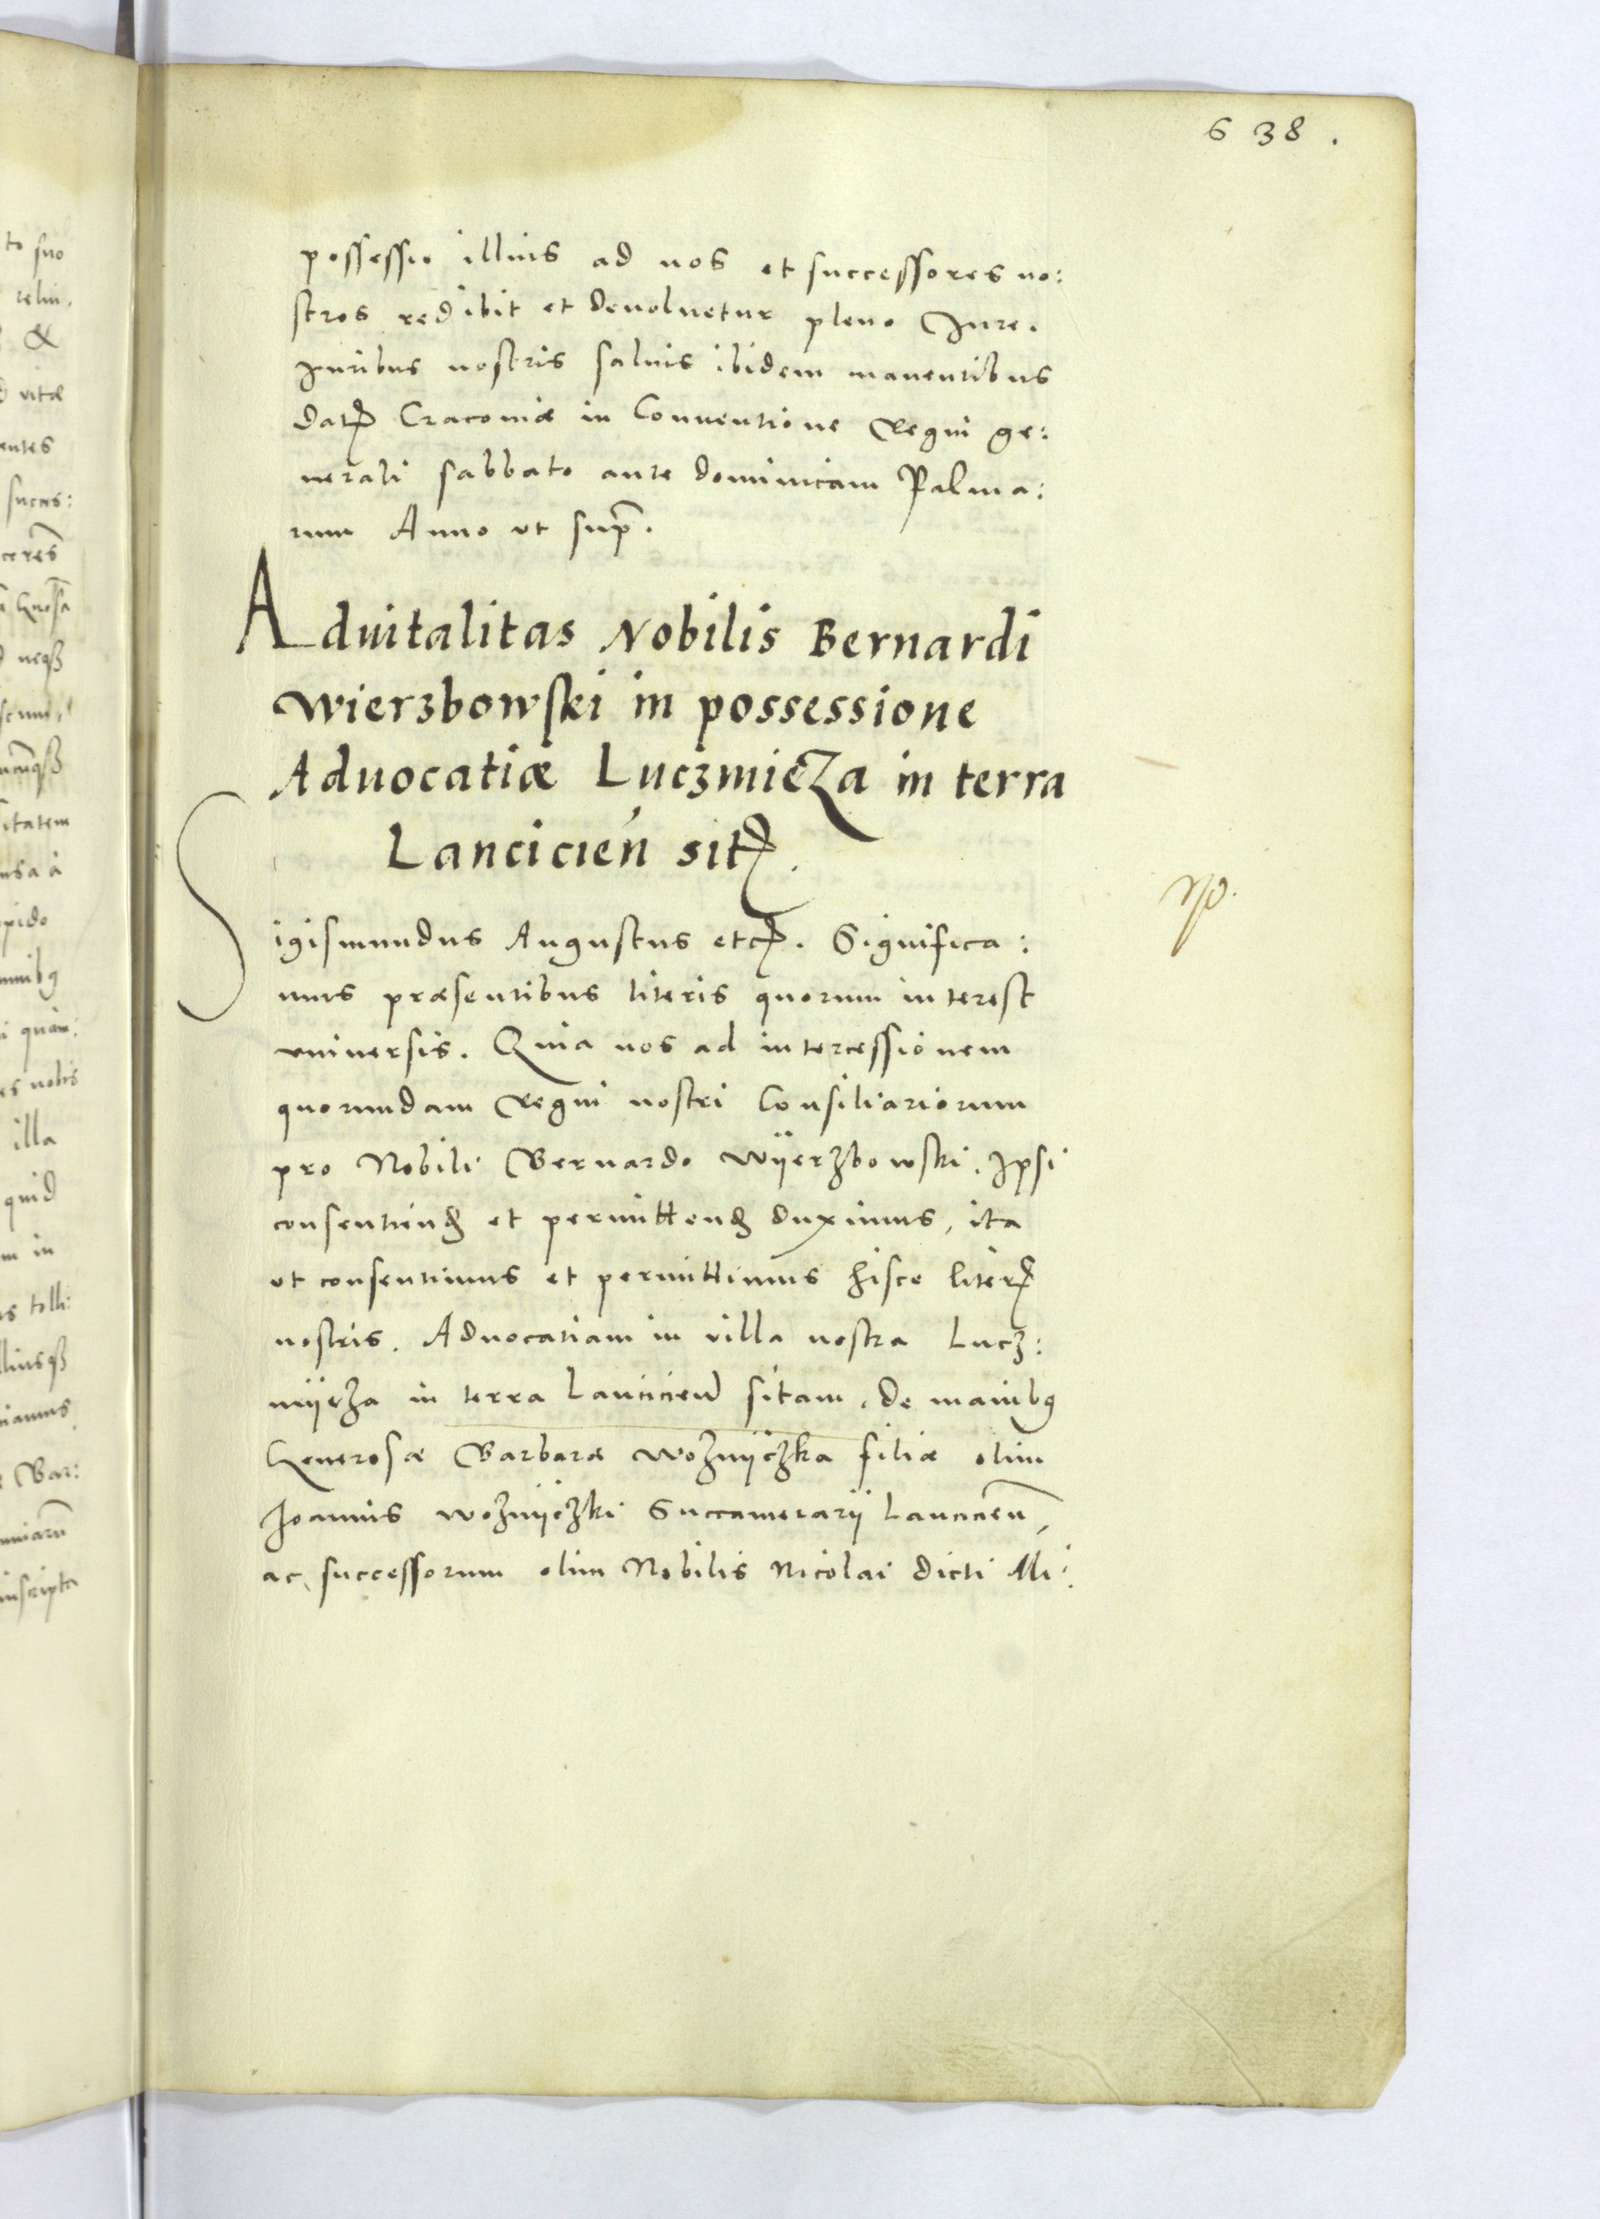 638.
possessio illius ad nos et successores no:
stros redibit et devoluetur pleno Jure.
Juribus nostris saluis ibidem manentibus
Datꝭ Cracoviæ in Conventione Regni ge:
nerali sabbato ante dominicam Palma:
rum Anno ut sup̃.
Aduitalitas Nobilis Bernardi
Wierzbowski in possessione
Aduocatiæ Luczmięza in terra
Lancicień sitꝭ.
Sigismundus Augustus etcꝭ. Significa:
mus præsentibus literis quorum interest
vniuersis. Quia nos ad intercessionem
quorundam Regni nostri Consiliariorum
pro Nobili Bernardo Wÿerzbowski. Ipsi
consentienđ et permittenđ duximus, ita
ut consentimus et permittimus hisce literꝭ
nostris. Aduocatiam in villa nostra Lucz:
mÿęza in terra Lancicień sitam, de manibꝰ
Generosæ Barbaræ Woznÿczka filiæ olim
Joannis Woznÿczki Succamerarÿ Lancicień,
ac successorum olim Nobilis Nicolai dicti Mi:
to suo
relin.
&
vitæ
entes
itatem
illa
quid
m in
inscripta